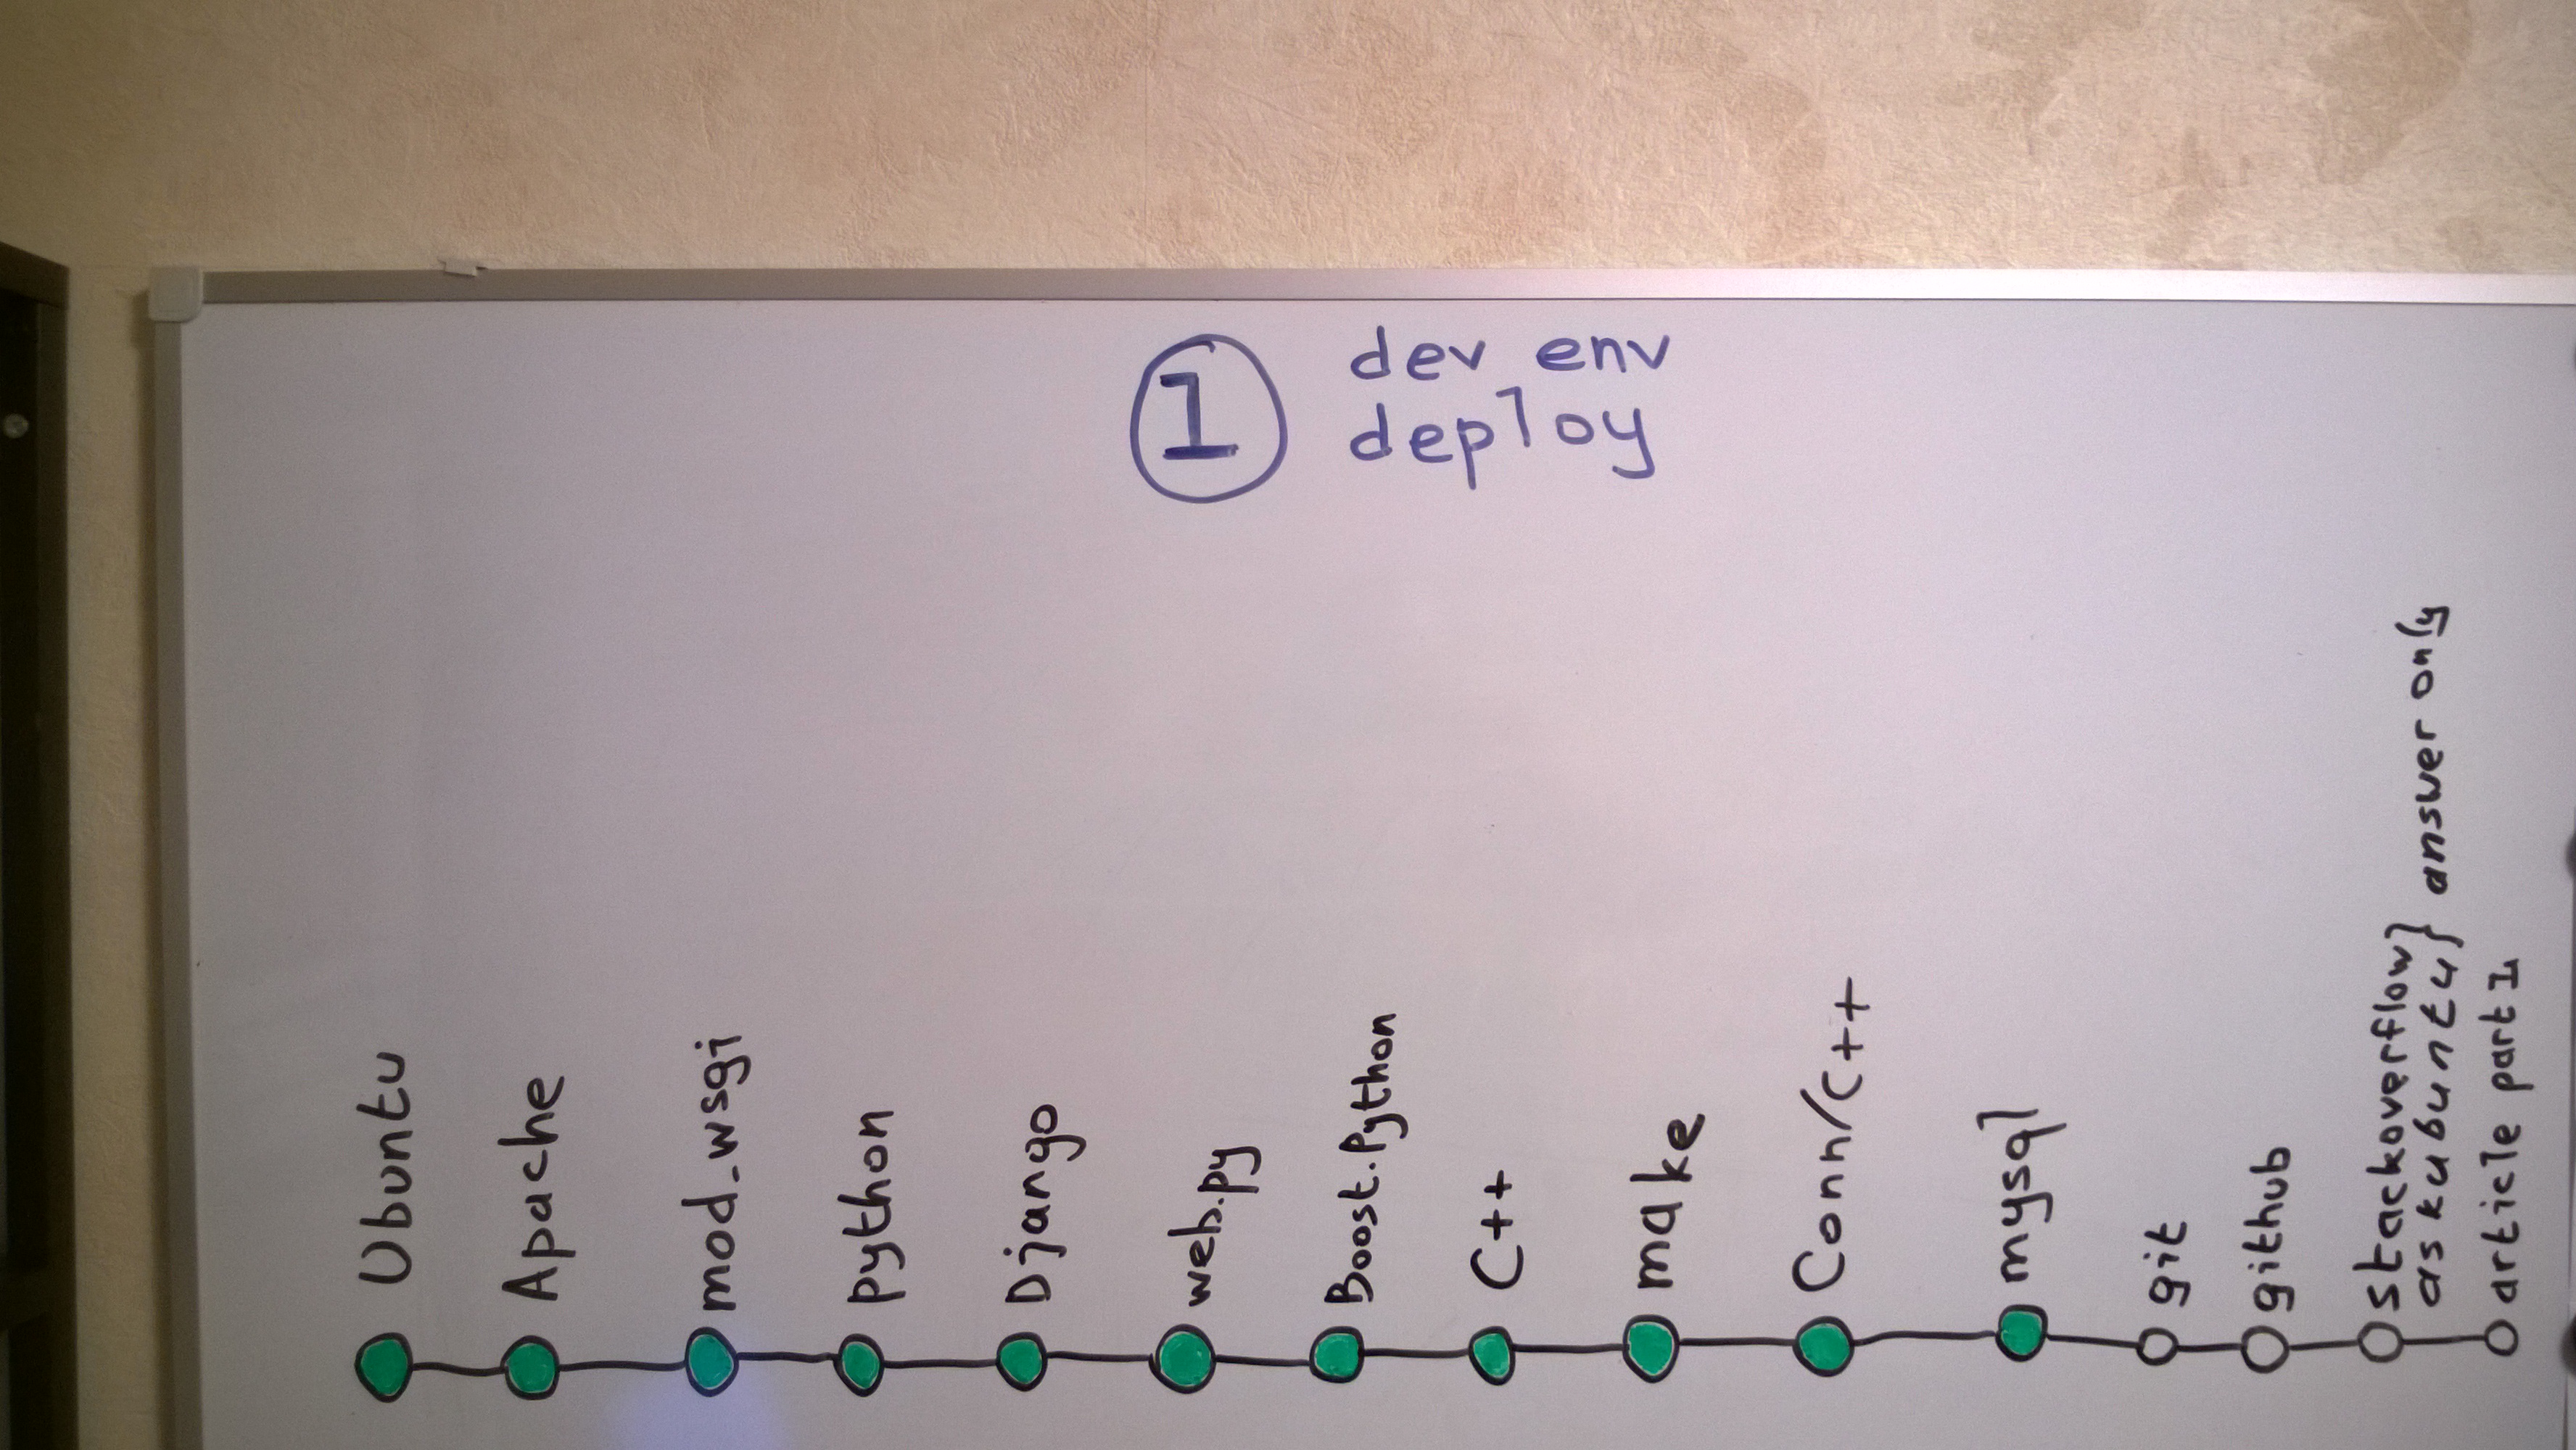 1
dev env
deploy
Ubuntu
Apache
mod_wsgi
python
Django
web.py
Boost.Python
C++
make
Conn/C++
mysql
git
github
stackoverflow}
askubuntu} answer only
article part 1